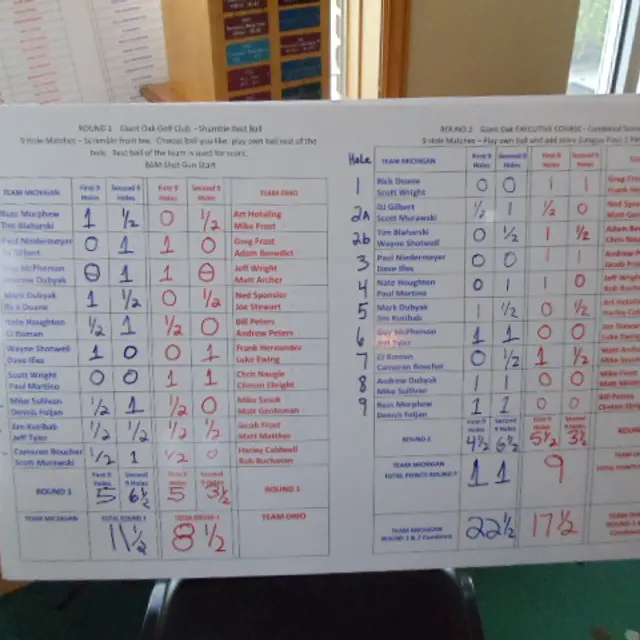 ROUND 1 Giant Oak Golf Club - Shamble Best Ball
9 Hole Matches - Scramble from tee. Choose ball you like, play own ball rest of the
hole. Best ball of the team is used for score.
8AM Shot Gun Start
TEAM MICHIGAN First 9 Holes Second 9 Holes First 9 Holes Second 9 Holes TEAM OHIO
Russ Morphew Tim Blaharski 1 ½ 0 ½ Art Hotaling Mike Frost
Paul Niedermeyer DJ Gilbert 0 1 1 0 Greg Frost Adam Benedict
McPherson Andrew Dubyak 0 1 1 0 Jeff Wright Matt Archer
Mark Dubyak Rick Doane 1 ½ 0 ½ Ned Sponsler Joe Stewart
Nate Houghton CJ Roman ½ 1 ½ 0 Bill Peters Andrew Peters
Wayne Shotwell Dave Iltes 1 0 0 1 Frank Hernandez Luke Ewing
Scott Wright Paul Martino 0 0 1 1 Chris Naugle Clinton Elright
Mike Sullivan Dennis Foljan ½ 1 ½ 0 Mike Sesok Matt Genteman
Jim Kosibab Jeff Tyler ½ ½ ½ ½ Jacob Frost Matt Matthes
Cameron Boucher Scott Murawski ½ 1 ½ 0 Harley Caldwell Rob Buchanan
First 9 Holes Second 9 Holes First 9 Holes Second 9 Holes
ROUND 1 5 6½ 5 3½ ROUND 1
TEAM MICHIGAN TOTAL ROUND 1 11½ TOTAL ROUND 1 8½ TEAM OHIO
ROUND 2 Giant Oak EXECUTIVE COURSE - Combined
9 Hole Matches - Play own ball and add
Hole TEAM MICHIGAN First 9 Holes Second 9 Holes First 9 Holes Second 9 Holes TEAM
1 Rick Doane Scott Wright 0 0 1 1 Greg Frank
2A DJ Gilbert Scott Murawski ½ 1 ½ 0 Ned Matt
2b Tim Blaharski Wayne Shotwell 0 ½ 1 ½ Adam Chris
3 Paul Niedermeyer Dave Iltes 0 0 1 1 Jacob
4 Nate Houghton Paul Martino 0 1 1 0 Jeff Rob
5 Mark Dubyak Jim Kosibab 1 ½ 0 ½ Art Harley
6 McPherson Jeff Tyler 1 1 0 0 Joe Luke
7 CJ Roman Cameron Boucher 0 ½ 1 ½ Mike
8 Andrew Dubyak Mike Sullivan 1 1 0 0 Mike Matt
9 Russ Morphew Dennis Foljan 1 1 0 0 Bill Clinton
First 9 Holes Second 9 Holes First 9 Holes Second 9 Holes
ROUND 2 4½ 6½ 5½ 3½
TEAM MICHIGAN TOTAL POINTS ROUND 2 11 9
TEAM MICHIGAN ROUND 1 & 2 Combined 22½ 17½